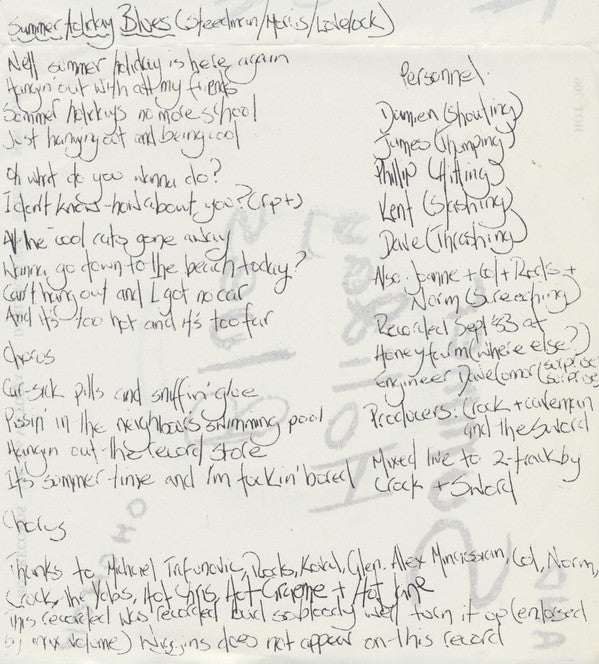 Summer Holiday Blues (Steedman/Morris/Lovelock)
Well summer holiday is here again
Hangin out with all my friends
Sommer holidays no more school
Just hanging out and being cool
Oh what do you wanna do?
I don't know-how about you? (rpt)
All the cool cats gone away
Wanna go down to the beach today?
Can't hang out and I got no car
And it's too hot and it's too far
Chorus
Car-sick pills and sniffin' glue
Pissin' in the neighbours swimming pool
Hangin out the record store
It's summer time and I'm fuckin' bored
Chorus
Personnel.
Damien (Shouting)
James (Thumping)
Phillip (Hitting)
Kent (Slashing)
Dave (Thrashing)
Also: Joanne + Col + Rocks. +
Norm (Screeching)
Recorded Sept '83 at
Honeyfarm (where else?)
engineer Dave (surprise
surprise
Producers: Crock + caveman
and the Sword
Mixed live to 2-track by
Crock + Sword
Thanks to Michael Trifunovic, Rocks, Glen. Alex Col, Norm,
Crock, the Yobs, Hot Chris, Hot Graeme + Hot June
This recorded was recorded loud so bloody well turn it up (enclosed
by max volume) Huggins does not appear on this record